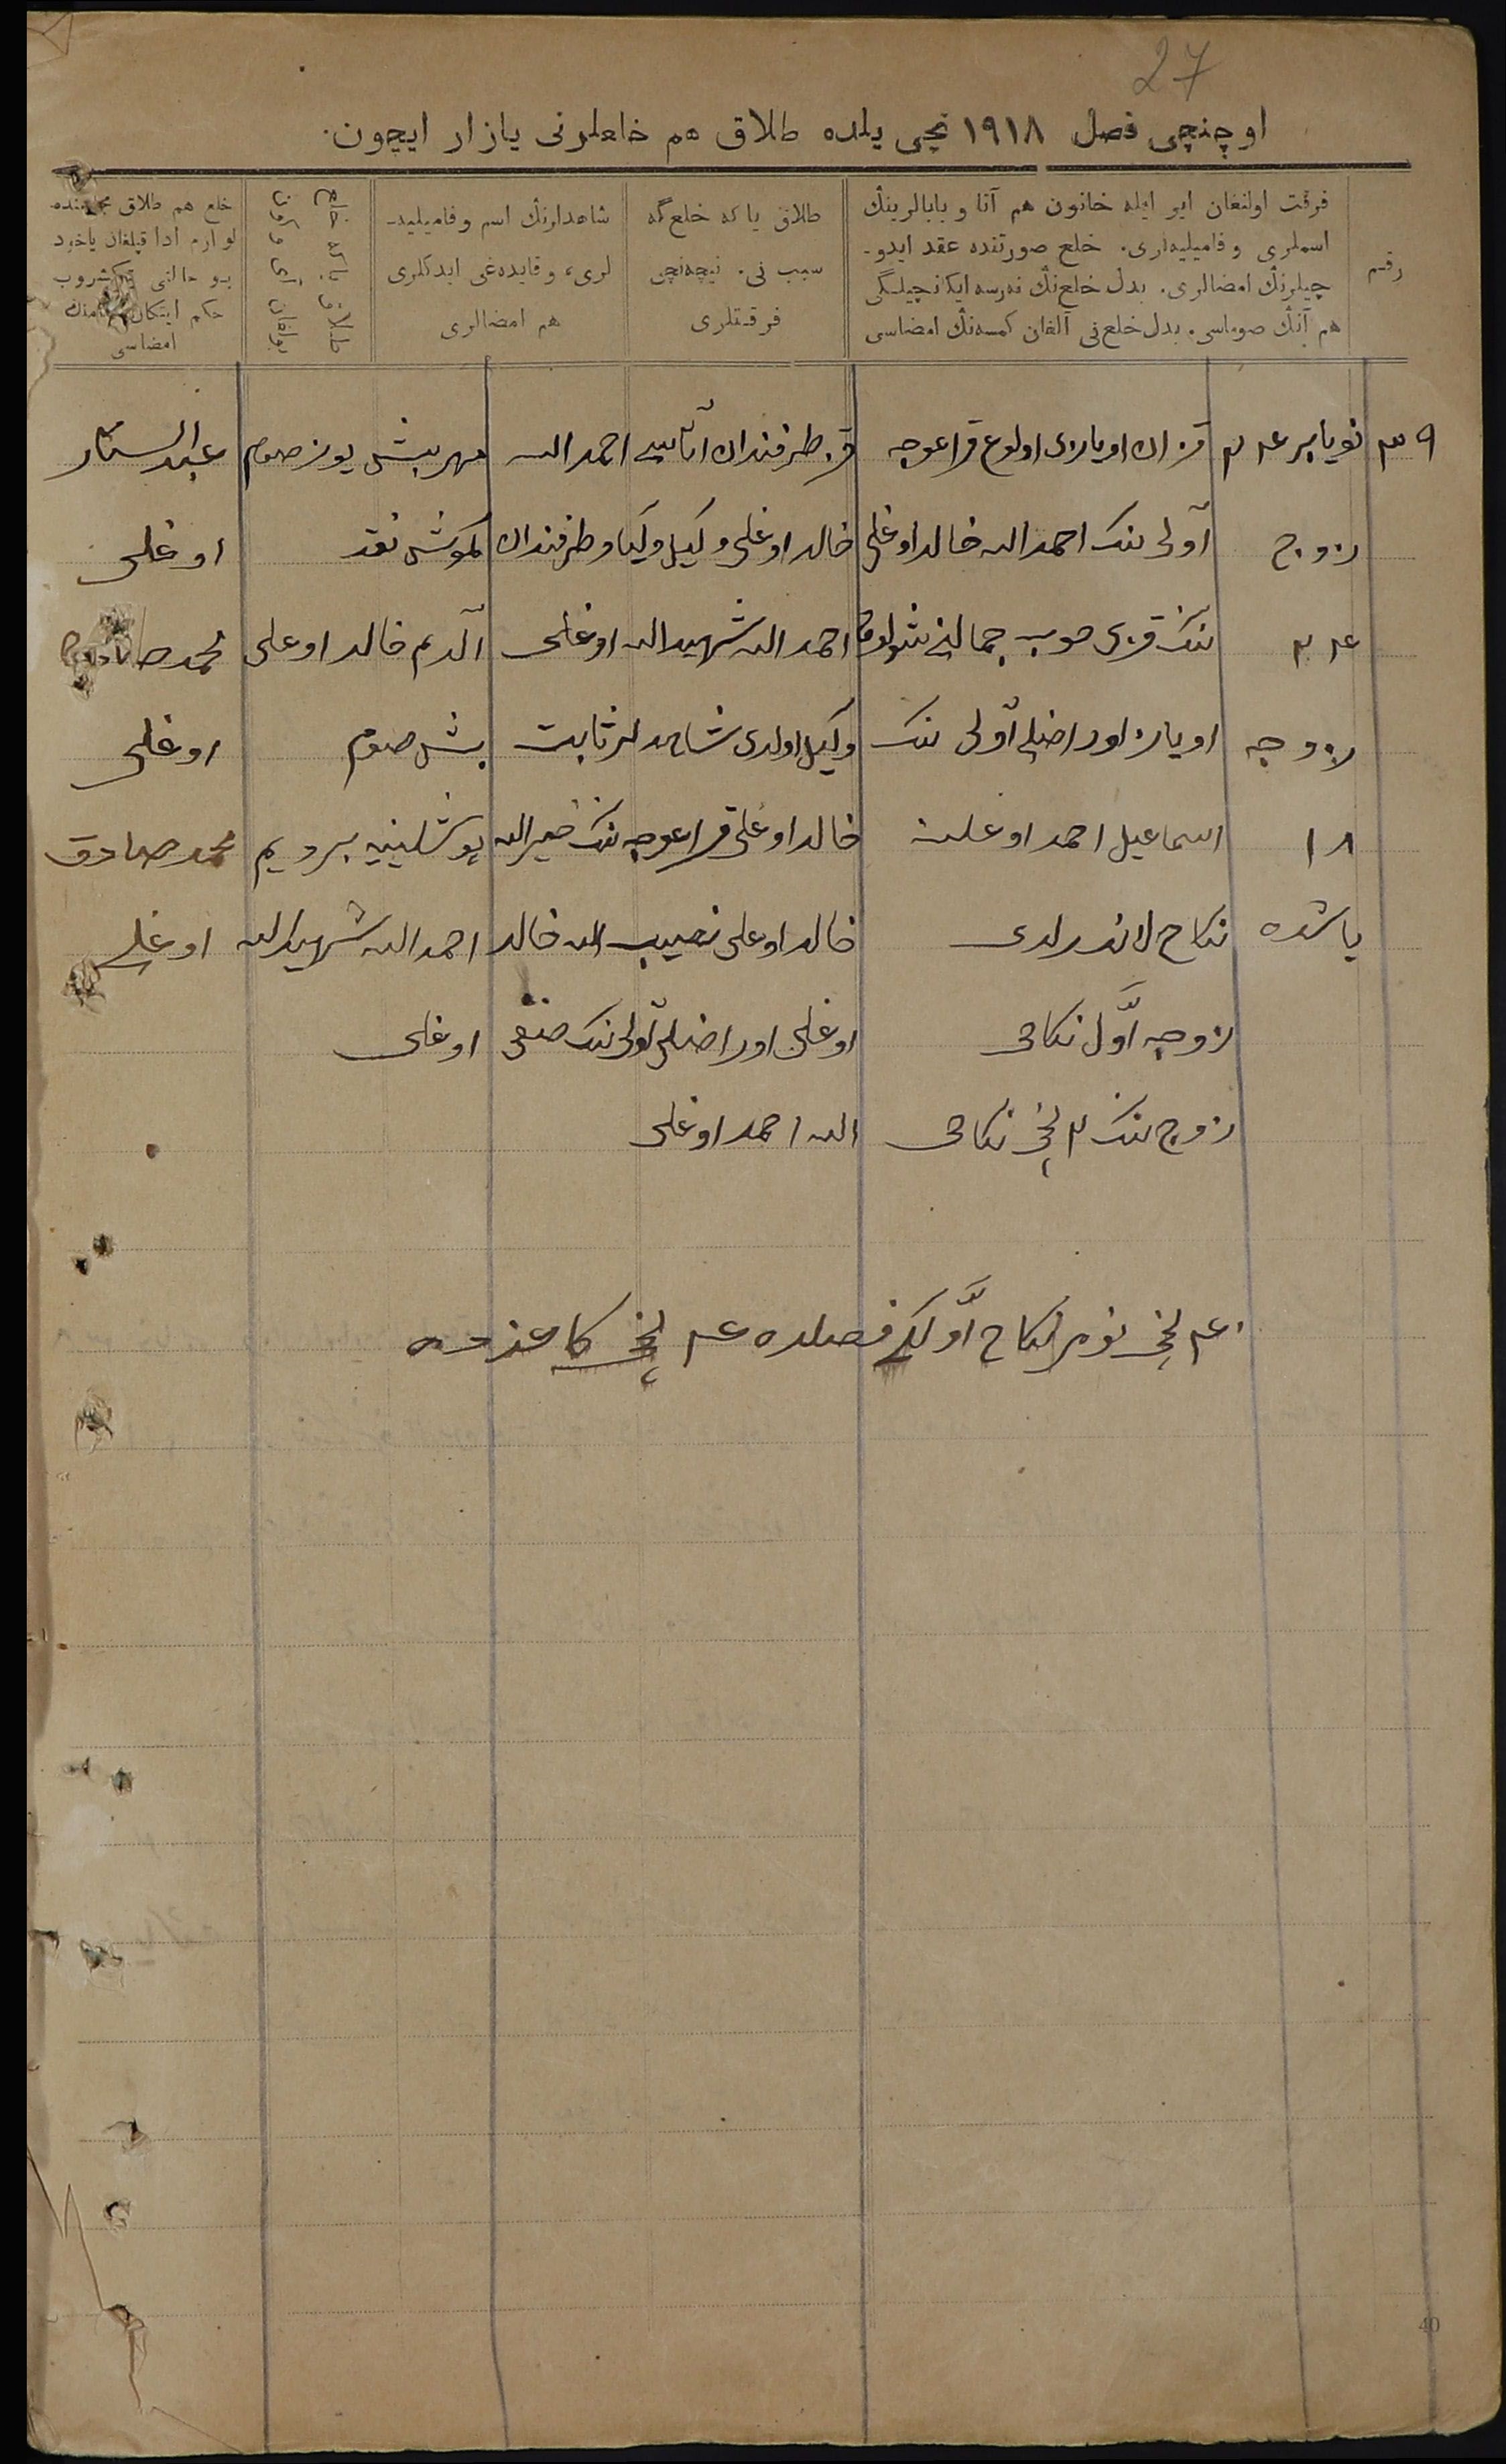 27
اوچنچی فصل ۱۹۱۸ نچی یلده طلاق هم خلعلرنی یازار ایچون.
رقم
فرقت اولنغان ایر ایله خاتون هم آتا و بابالرینڭ
اسملری و فامیلیه‌لری. خلع صورتنده عقد ایدو-
چیلرنڭ امضالری. بدل خلع‌نڭ نه‌رسه ایکانچیلگی
هم آنڭ صوماسی. بدل خلع‌نی آلغان کمسه‌نڭ امضاسی
طلاق یا که خلع‌گه
سبب نی. نیچه‌نچی
فرقتلری
شاهدلرنڭ اسم و فامیلیه-
لری، و قایده‌غی ایدکلری
هم امضالری
خلع یا که طلاق
بولغان آی و کون
خلع هم طلاق مجلسنده
لوازم ادا قیلغان یاخود
بو حالنی تیکشروب
حکم ایتکان امامنڭ
امضاسی
۳۹ نویابر ۲۴ قزان اویازی اولوغ قراعوجه قز طرفندان آتاسی احمد الله مهر بیش یوز صوم عبد الستار
زوج آولی ننک احمد الله خالد اوغلی خالد اوغلی وکیل وکیاو طرفندان کموش نقد اوغلی
۲۴ ننک قزی احمد الله شهید الله اوغلی آلدم خالد اوغلی محمد صادق
زوجه اویاز اوراضلی آولی ننک وکیل اولدی شاهدلر ثابت بش صوم اوغلی
۱۸ اسماعیل احمد اوغلینه خالد اوغلی قراعوجه ننک خیر الله بیردیم محمد صادق
یاشده نکاح لاندرلدی خالد اوغلی نصیب الله خالد احمد الله شهید الله اوغلی
زوجه اوّل نکاحی اوغلی اوراضلی آولی ننک اوغلی
زوج ننک ۲ نچی نکاحی الله احمد اوغلی
۴۰ نچی نومر نکاح اوّلکی فصلده ۴۰ نچی کاغذده
40